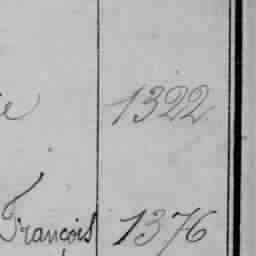 1322
François 1376